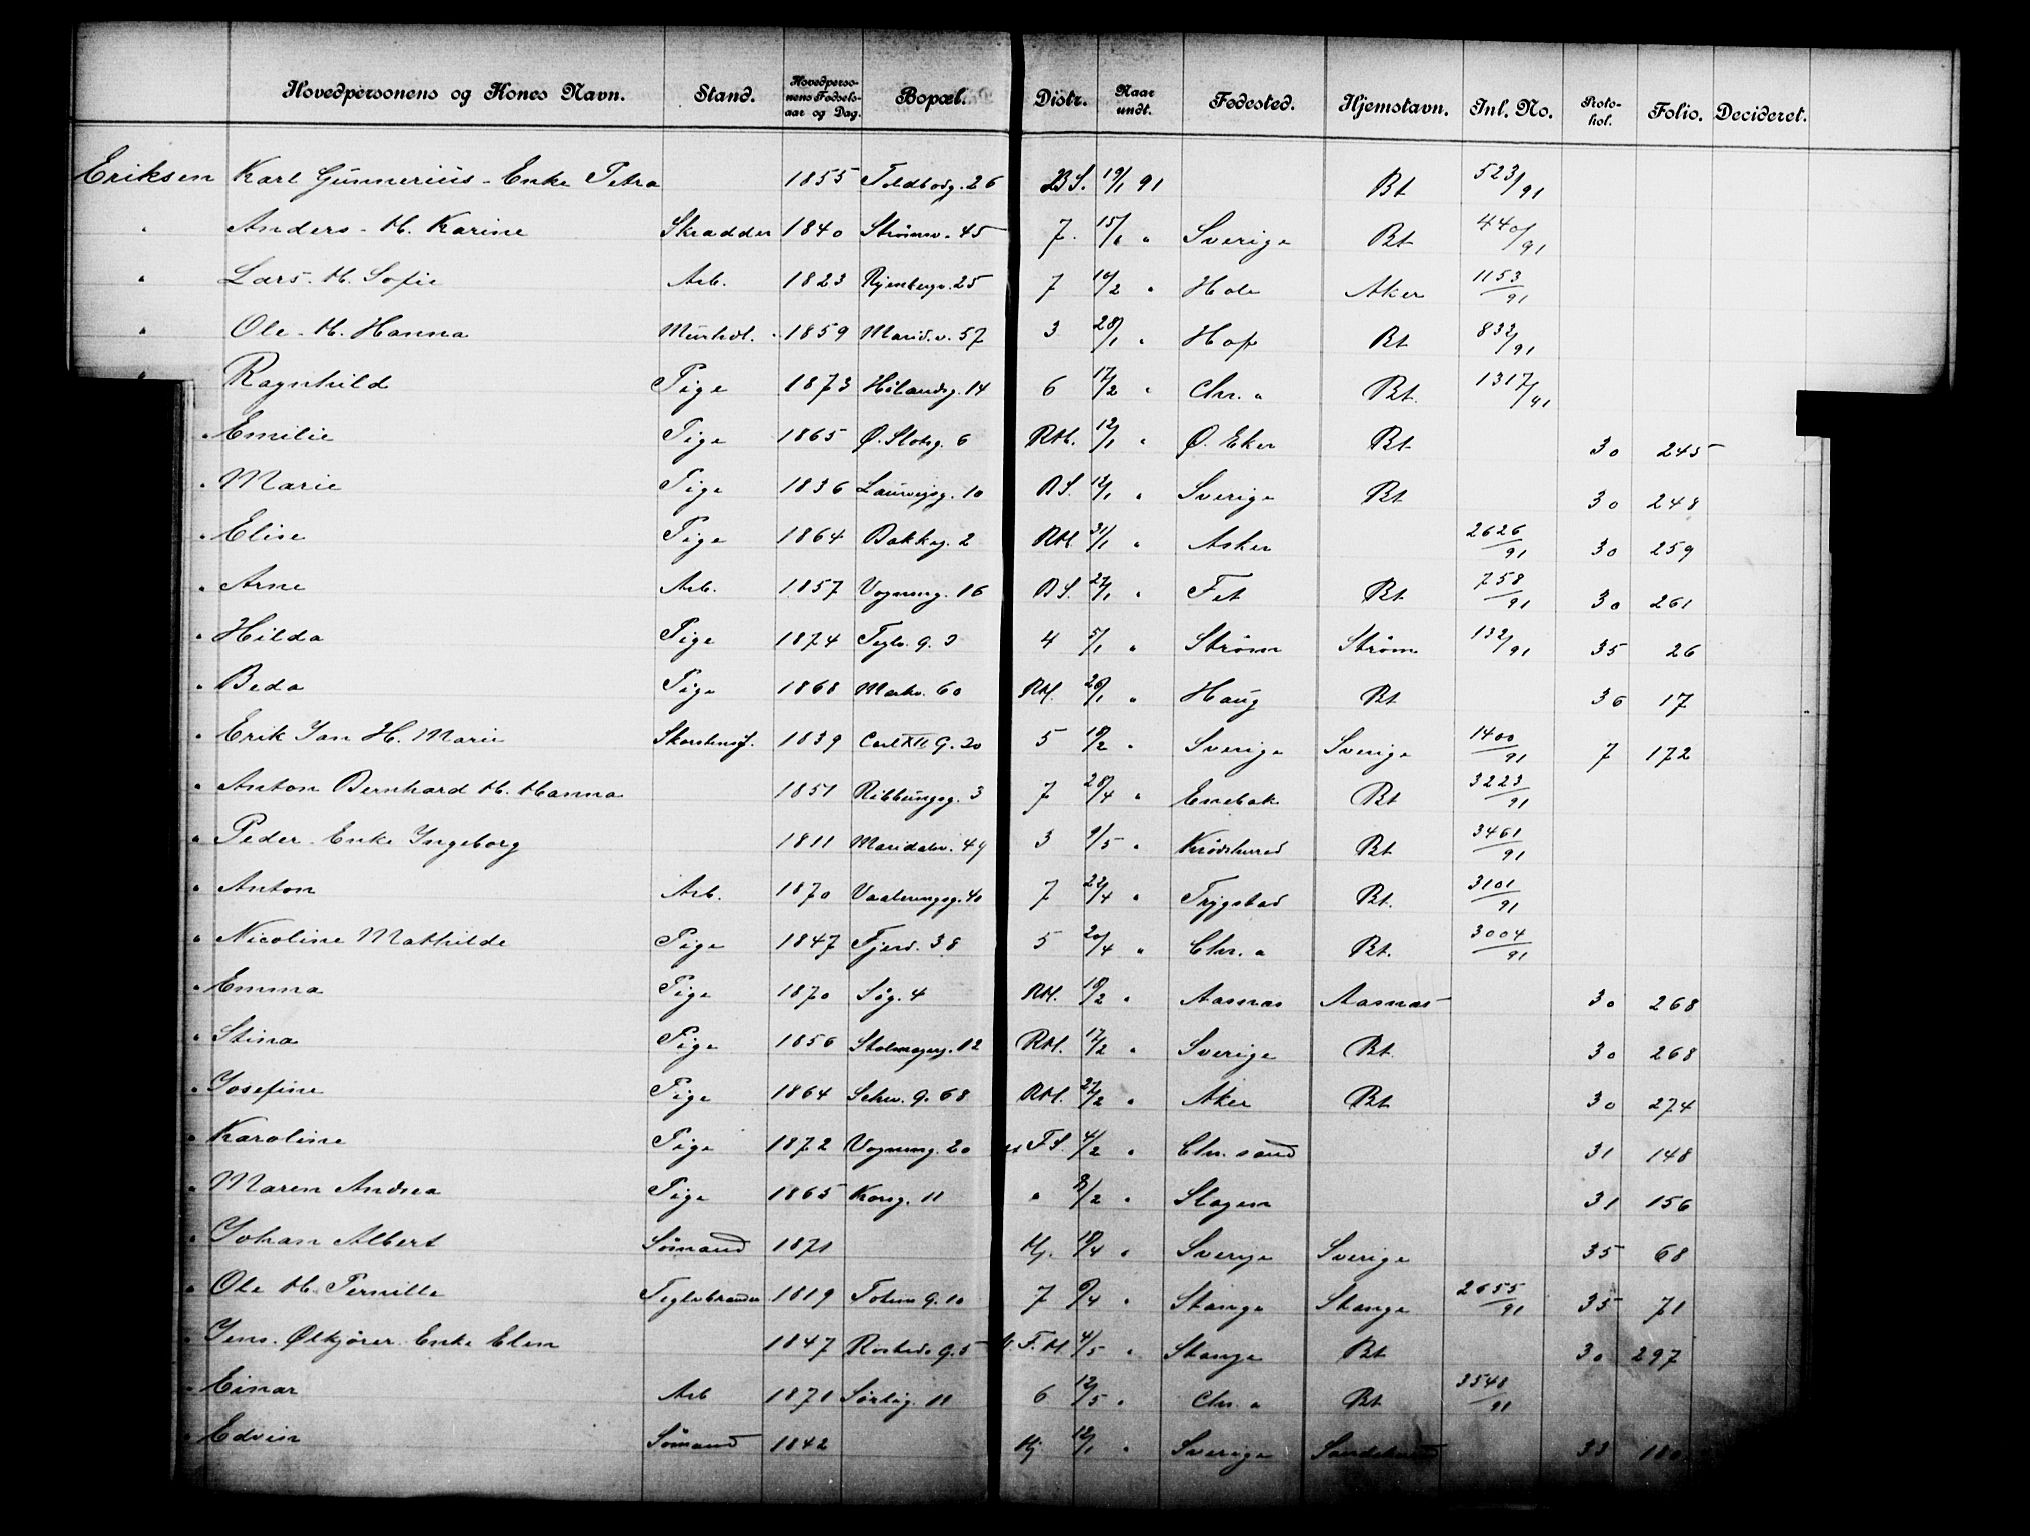 Hovedpersonens og Kones Navn. Stand. Hovedpersonens Fødselsaar og Dag. Bopæl. Distr. Naar undt. Fødested. Hjemstavn. Inl. No. Protokol. Folio. Decideret.
Eriksen Karl Gunnerius - Enke Petra 1855 Toldbodg. 26 B.S. 19/1 91 Bt 523/91
" Anders - H. Karine Skradder 1840 Strømsv. 45 7. 15/1 " Sverige Bt 440/91
" Lars - H. Sofie Arb. 1823 Ryenbergv. 25 7 14/2 " Hole Aker 1153/91
" Ole - H. Hanna Murhdl. 1859 Marid.v. 57 3 28/1 " Hof Bt 832/91
" Ragnhild Pige 1873 Hølandsg. 14 6 17/2 " Chr. a Bt. 1317/91
" Emilie Pige 1865 Ø. Slotsg. 6 RH. 12/1 " Ø. Eker Bt 30 245
" Marie Pige 1836 Laurvigsg. 10 B.S. 12/1 " Sverige Bt 30 248
" Elise Pige 1864 Bakkeg. 2 RH. 31/1 " Asker 2626/91 30 259
" Arne Arb. 1857 Vognmg. 16 B.S. 27/1 " Fet Bt 758/91 30 261
" Hilda Pige 1874 Teglv. G. 3 4 5/1 " Strøm Strøm 132/91 35 26
" Beda Pige 1868 Markv. 60 RH. 26/1 " Haug Bt 36 17
" Erik Jan H. Marie Skorstensf. 1839 Carl XII G. 20 5 18/2 " Sverige Sverige 1400/91 7 172
" Anton Bernhard H. Hanna 1851 Ribbungsg. 3 7 28/4 " Enebak Bt 3223/91
" Peder - Enke Ingeborg 1811 Maridalsv. 49 3 9/5 " Krødsherred Bt 3461/91
" Anton Arb. 1870 Vaalerengsg. 40 7 22/4 " Trygstad Bt. 3101/91
" Nicoline Mathilde Pige 1847 Fjerd. 38 5 20/4 " Chr. a Bt. 3004/91
" Emma Pige 1870 Søg. 4 RH. 18/2 " Aasnas Aasnas 30 268
" Stina Pige 1856 Stolmagerg. 12 RH. 17/2 " Sverige Bt. 30 268
" Josefine Pige 1864 Schw. G. 68 RH. 27/2 " Aker Bt 30 274
" Karoline Pige 1872 Vognmg. 20 F.S. 4/2 " Chr. sand 31 148
" Maren Andrea Pige 1865 Korsg. 11 " 8/2 " Slagen 31 156
" Johan Albert Sømand 1871 Hj. 18/4 " Sverige Sverige 35 68
" Ole H. Pernille Teglvbrander 1819 Toten G. 10 7 9/4 " Stange Stange 2655/91 35 71
" Jens. Ølkjører. Enke Elen 1847 Rosteds G. 5 F.H. 4/5 " Stange Bt 30 297
" Einar Arb 1871 Sørlig. 11 6 12/5 " Chr. a Bt 3548/91
" Edvin Sømand 1842 Hj 12/1 " Sverige 33 180